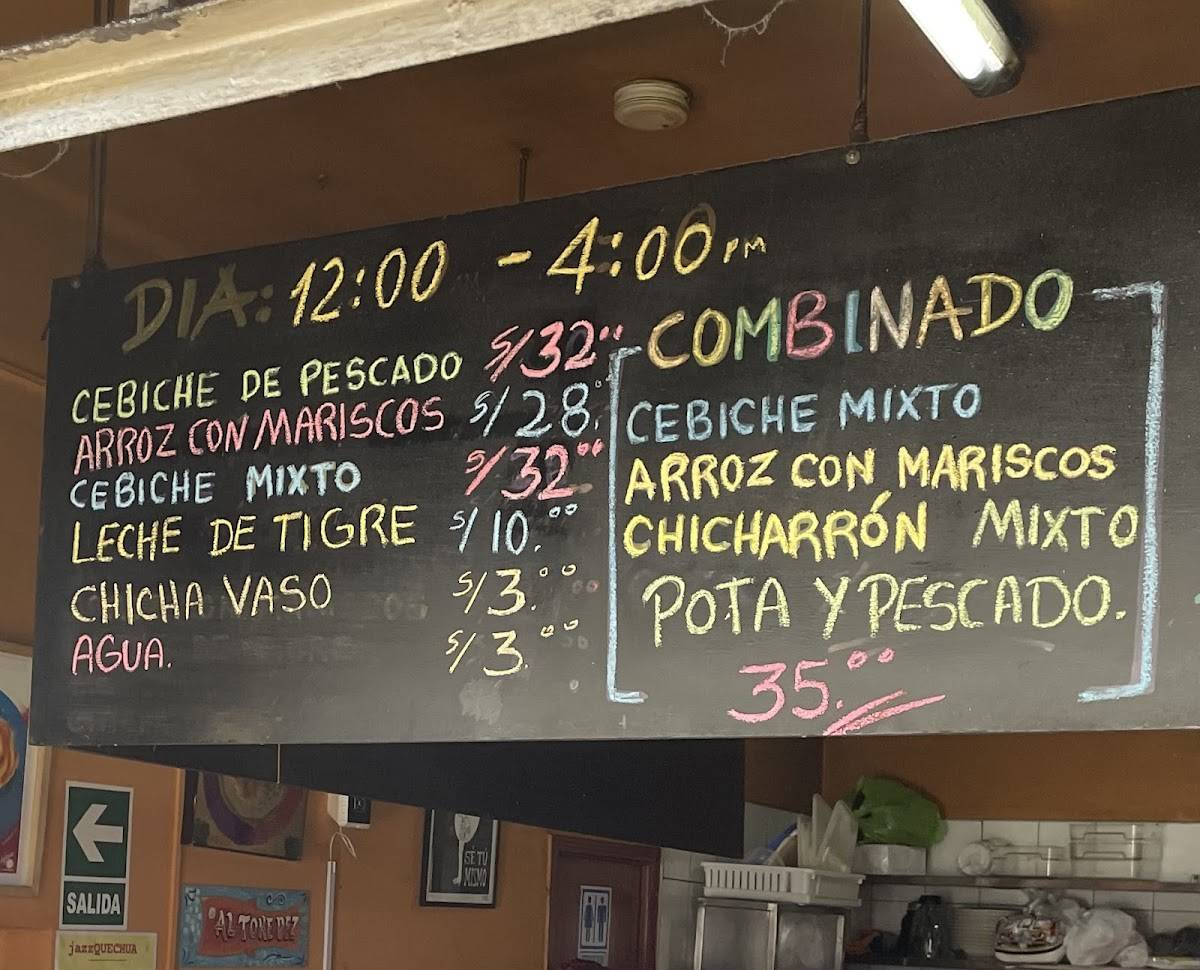 DIA: 12:00 - 4:00 PM
CEBICHE DE PESCADO S/32.00
ARROZ CON MARISCOS S/28.00
CEBICHE MIXTO S/32.00
LECHE DE TIGRE S/10.00
CHICHA VASO S/3.00
AGUA. S/3.00
COMBINADO
CEBICHE MIXTO
ARROZ CON MARISCOS
CHICHARRÓN MIXTO
POTA Y PESCADO.
35.00
SALIDA
jazzQUECHUA
AL TOKE PEZ
SÉ TÚ
MISMO